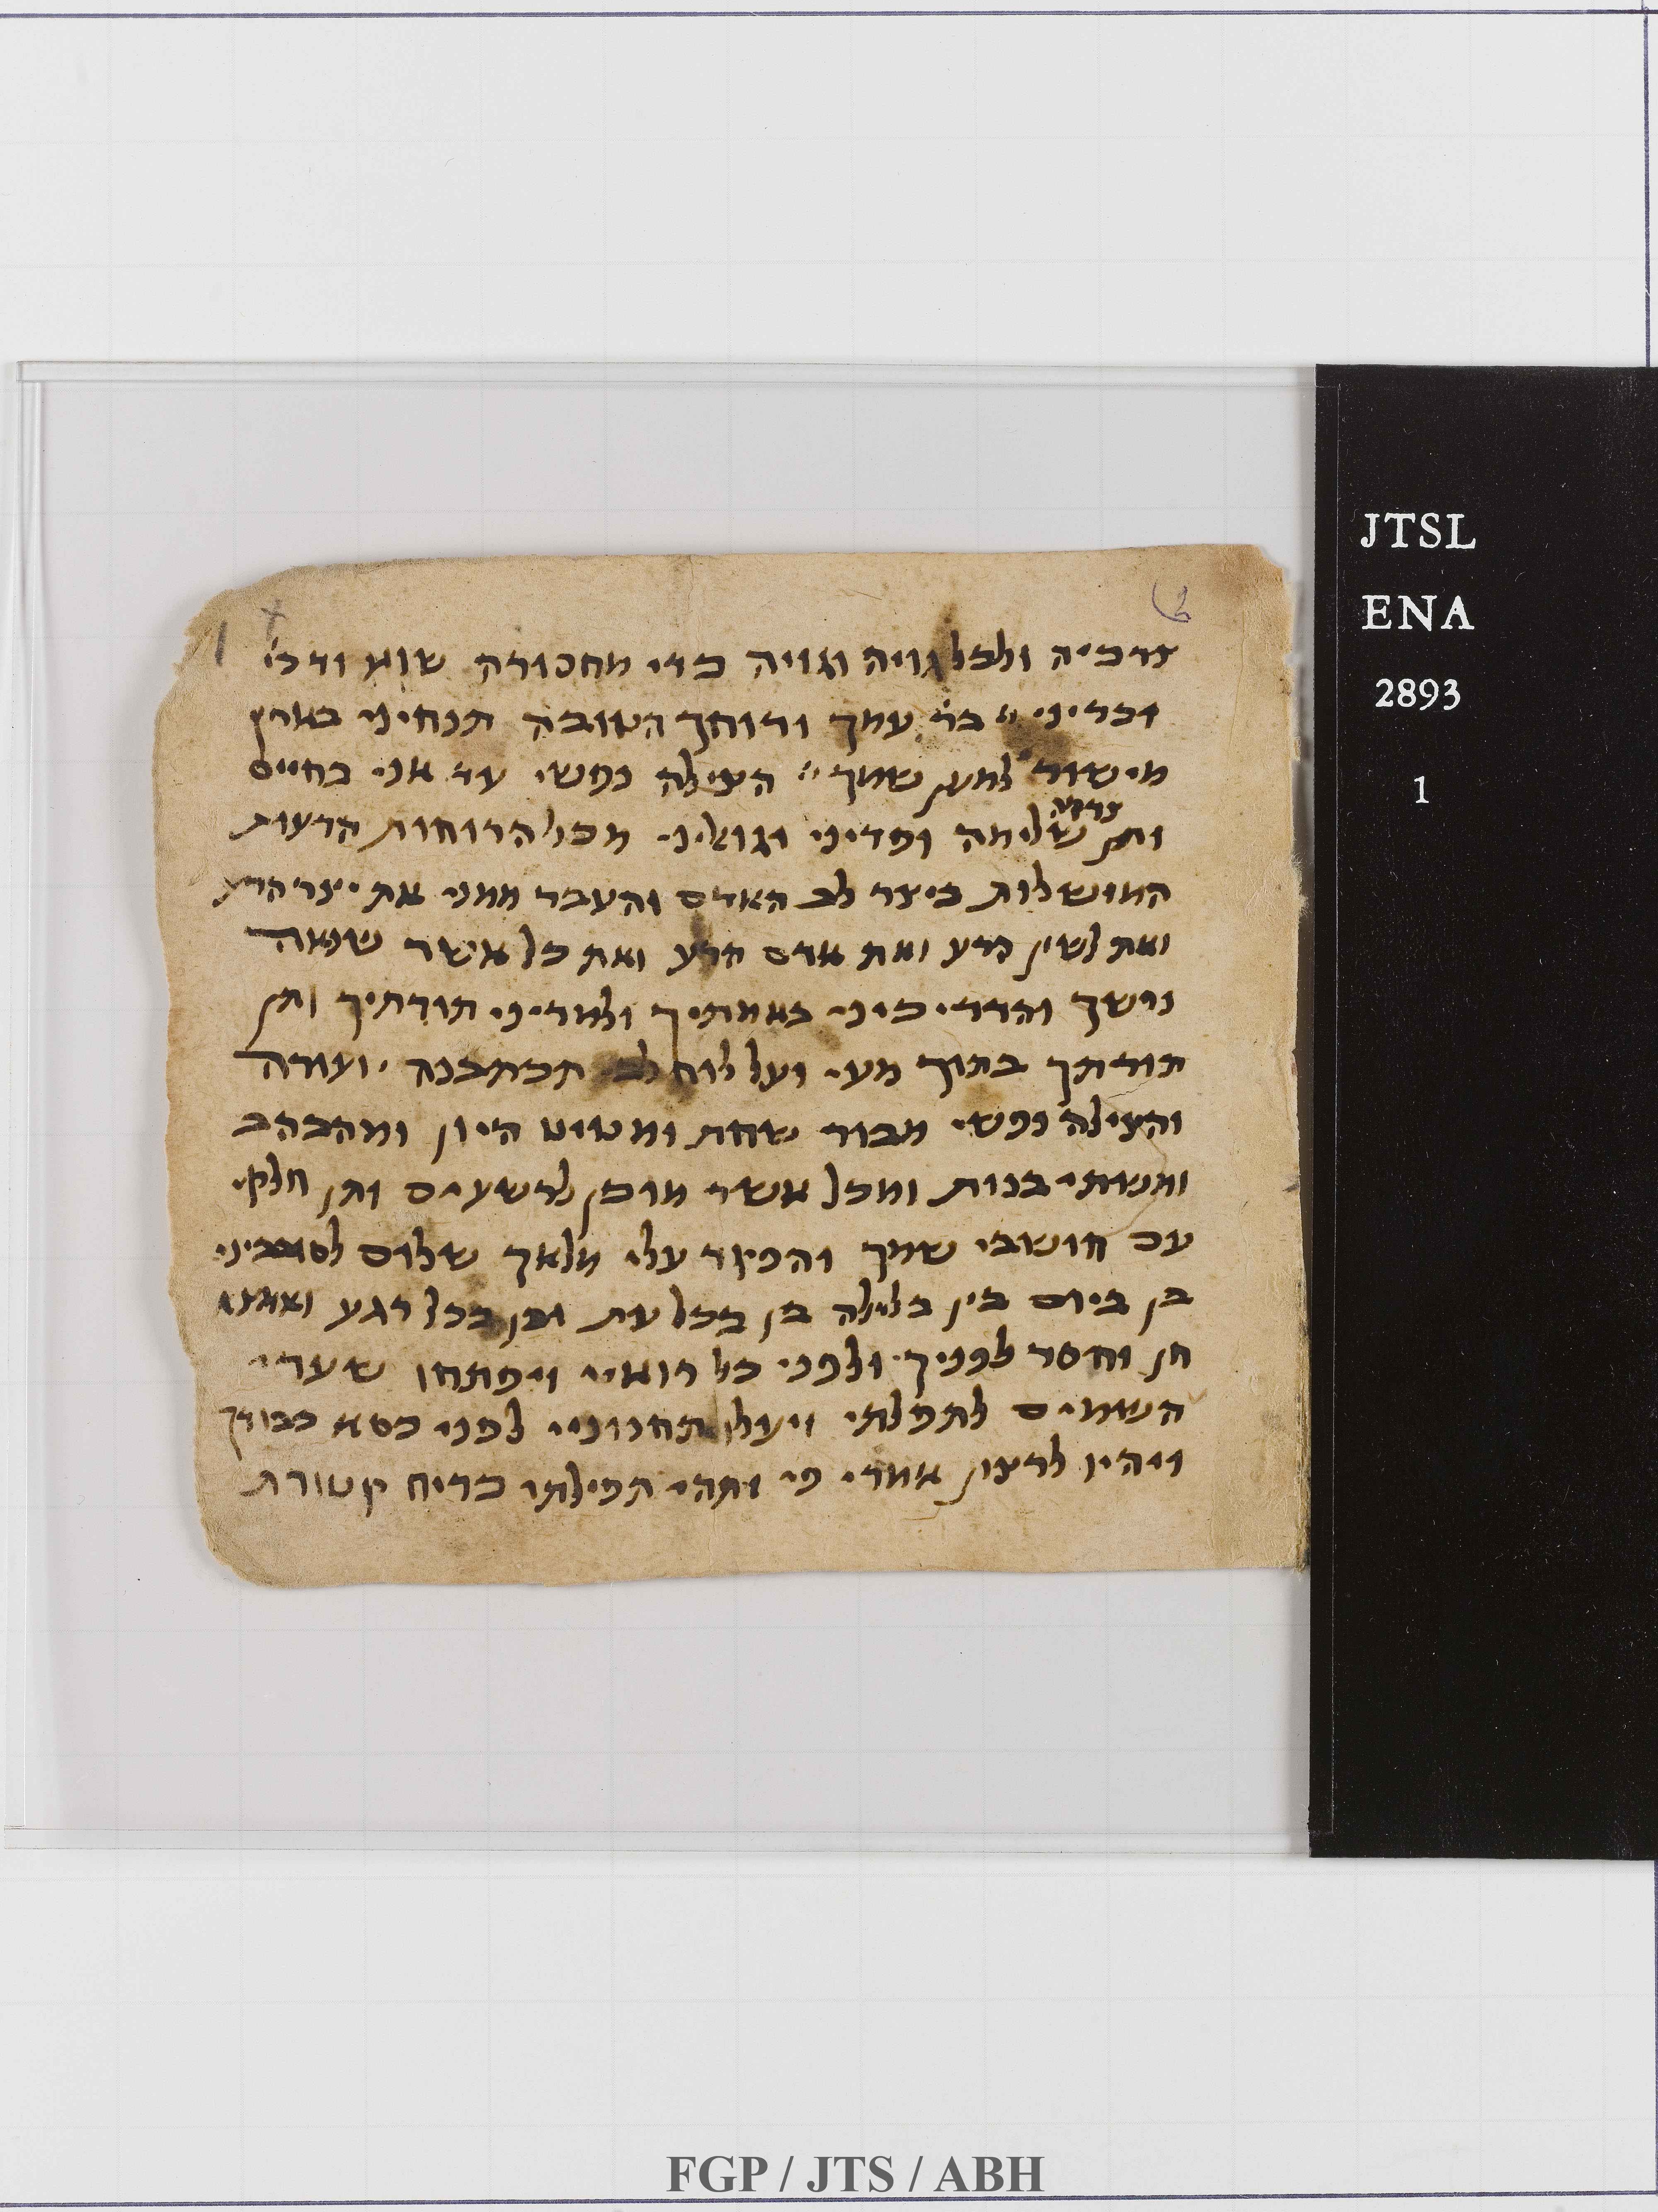 צרכיה ולכל גויה וגויה כדי מחסורה שומע ודכי
וכריני
עמך ורוחך הטובה תנחיני בארץ
מישור למען שמך הצילה נפשי עד אני בחיים
צדקה
ותן שלימה ופדיני וגואליני מכל הרוחות הרעות
המושלות ביצר לב האדם והעבר ממני את יצר הרע
ואת לשון הרע ואת אדם הרע ואת כל אשר שנאה
נפשך והדריכיני באמתיך ולמדיני תורתיך ותן
תורתך בתוך מעי ועל לוח לב תכתבנה ועזרה
והצילה נפשי מבור שחת ומטיט היון ומהבהב
ומשתי בנות ומכל אשר מוכן לרשעים ותן חלקי
עם חושבי שמך והפקד עלי מלאך שלום
בן ביום בין בלילה בן בכל עת ובן בכל רגע ואמצא
חן וחסד לפניך ולפני כל רואיי ויפתחו שערי
השמים לתפלתי ויעלו תחנוניי לפני כסא כבודך
ויהיו לרצון אמרי פי ותהי תפילתי כריח קטורת
JTSL
ENA
2893
1
FGP / JTS / ABH